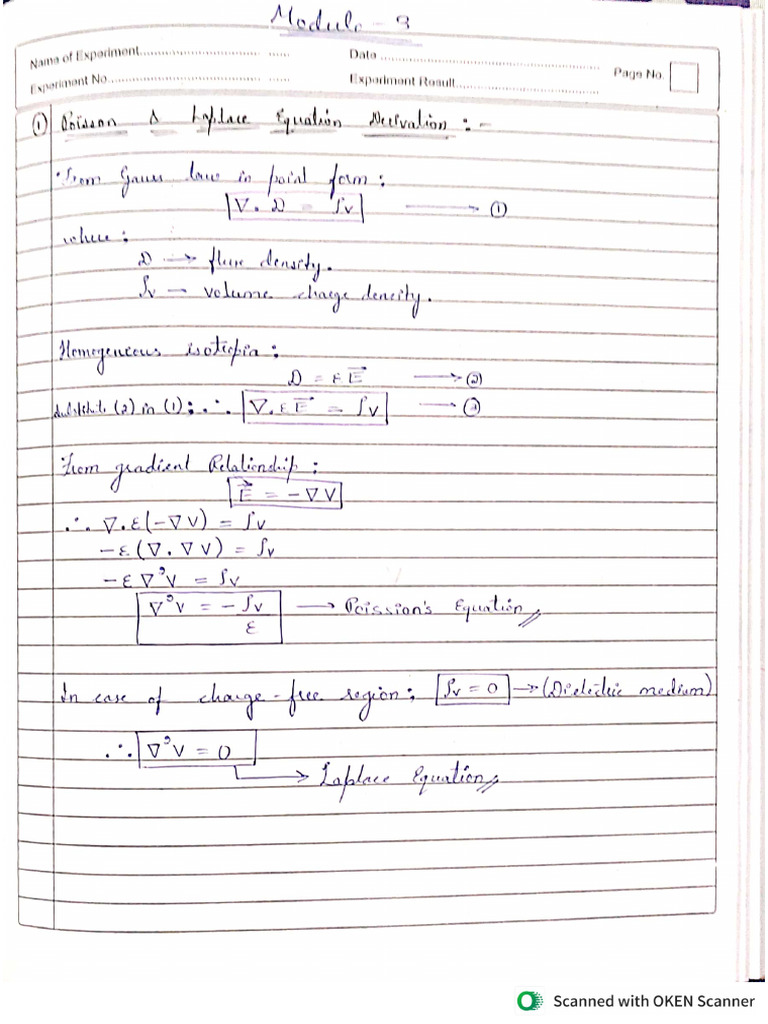 Module - 3
Name of Experiment
Date
Page No.
Experiment No.
Experiment Result
① Poisson & Laplace Equation Derivation : -
• From Gauss law in point form :
∇ . D = ρv ⟶ ①
where :
D → flux density.
ρv — volume charge density.
Homogeneous isotopia :
D = εE⃗ ⟶ ②
substitute (2) in (1) : ∴ ∇. εE⃗ = ρv ⟶ ③
From gradient Relationship :
E⃗ = -∇V
∴ ∇.ε(-∇V) = ρv
-ε(∇. ∇V) = ρv
-ε∇²V = ρv
∇²V = -ρv/ε → Poission's Equation//
In case of charge-free region; ρv = 0 → (Dielectric medium)
∴ ∇²V = 0
→ Laplace Equation//
Scanned with OKEN Scanner